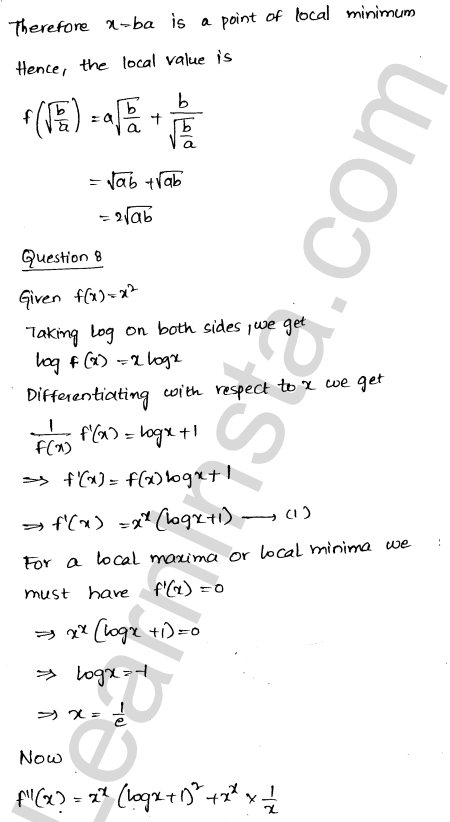 Therefore x=ba is a point of local minimum
Hence, the local value is
f(√(b/a)) = a√(b/a) + b/√(b/a)
= √ab + √ab
= 2√ab
Question 8
Given f(x)=x²
Taking log on both sides, we get
log f(x) = x logx
Differentiating with respect to x we get
1/f(x) f'(x) = logx+1
⇒ f'(x) = f(x)logx+1
⇒ f'(x) = xˣ(logx+1) ⟶ (1)
For a local maxima or local minima we :
must have f'(x) = 0
⇒ xˣ(logx +1)=0
⇒ logx=-1
⇒ x = 1/e
Now
f''(x) = xˣ (logx+1)² + xˣ × 1/x
LearnInsta.com